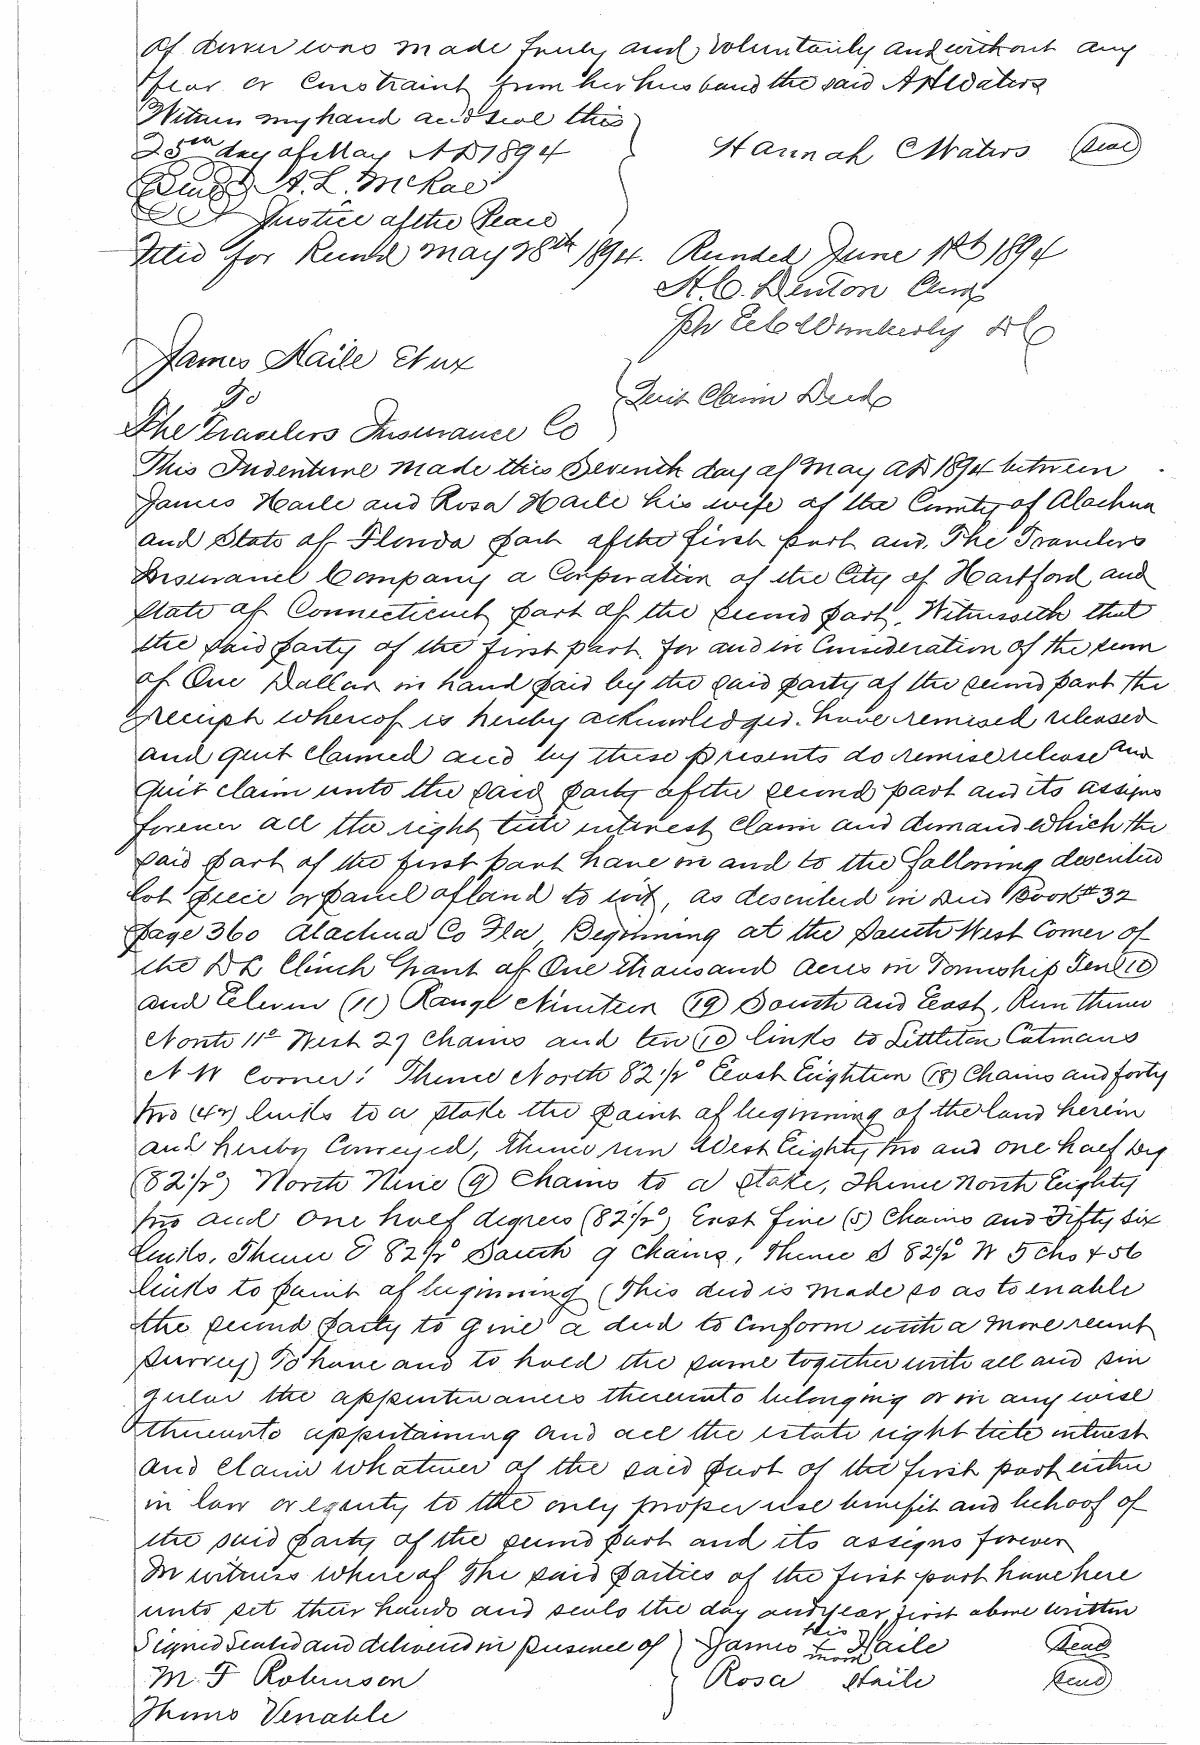 of dower was made freely and voluntarily and without any
fear or Constraint from her husband the said A H Waters
Witness my hand and seal this
25th day of May AD 1894
Hannah C Waters (Seal)
(Seal) A. L. McRae
Justice of the Peace
Filed for Record May 28th 1894. Recorded June 1st 1894
H. C. Denton Clerk
Pr E C Wimberly D C
James Haile Et ux
To
Quit Claim Deed
The Travelers Insurance Co
This Indenture made this Seventh day of May AD 1894 between
James Haile and Rosa Haile his wife of the County of Alachua
and State of Florida part of the first part and The Travelers
Insurance Company a Corporation of the City of Hartford and
State of Connecticut part of the second part, Witnesseth that
the said party of the first part for and in Consideration of the sum
of One Dollar in hand paid by the said party of the second part the
receipt whereof is hereby acknowledged. have remised released
and quit claimed and by these presents do remise release and
quit claim unto the said party of the second part and its assigns
forever all the right title interest claim and demand which the
said part of the first part have in and to the following described
lot piece or parcel of land to wit, as described in Deed Book # 32
page 360 Alachua Co Fla, Beginning at the South West Corner of
the D L Clinch Grant of One thousand Acres in Township Ten (10)
and Eleven (11) Range Nineteen (19) South and East, Run thence
North 11° West 27 Chains and ten (10) links to Littleton Catmans
N W Corner: Thence North 82 1/2° East Eighteen (18) Chains and forty
two (42) links to a stake the point of beginning of the land herein
and hereby Conveyed, thence run West Eighty two and one half Deg
(82 1/2°) North Nine (9) Chains to a stake, Thence North Eighty
two and one half degrees (82 1/2°) East five (5) Chains and Fifty six
links, Thence E 82 1/2° South 9 chains, Thence S 82 1/2° W 5 chs & 56
links to point of beginning (This deed is made so as to enable
the second party to give a deed to Conform with a more recent
Survey) To have and to hold the same together with all and sin
gular the appurtenances thereunto belonging or in any wise
thereunto appertaining and all the estate right title interest
and claim whatever of the said part of the first part either
in law or equity to the only proper use benefit and behoof of
the said party of the second part and its assigns forever
In witness whereof The said parties of the first part have here
unto set their hands and seals the day and year first above written
Signed Sealed and delivered in presence of James his + mark Haile (Seal)
M. F Robinson Rosa Haile (Seal)
Thomo Venable